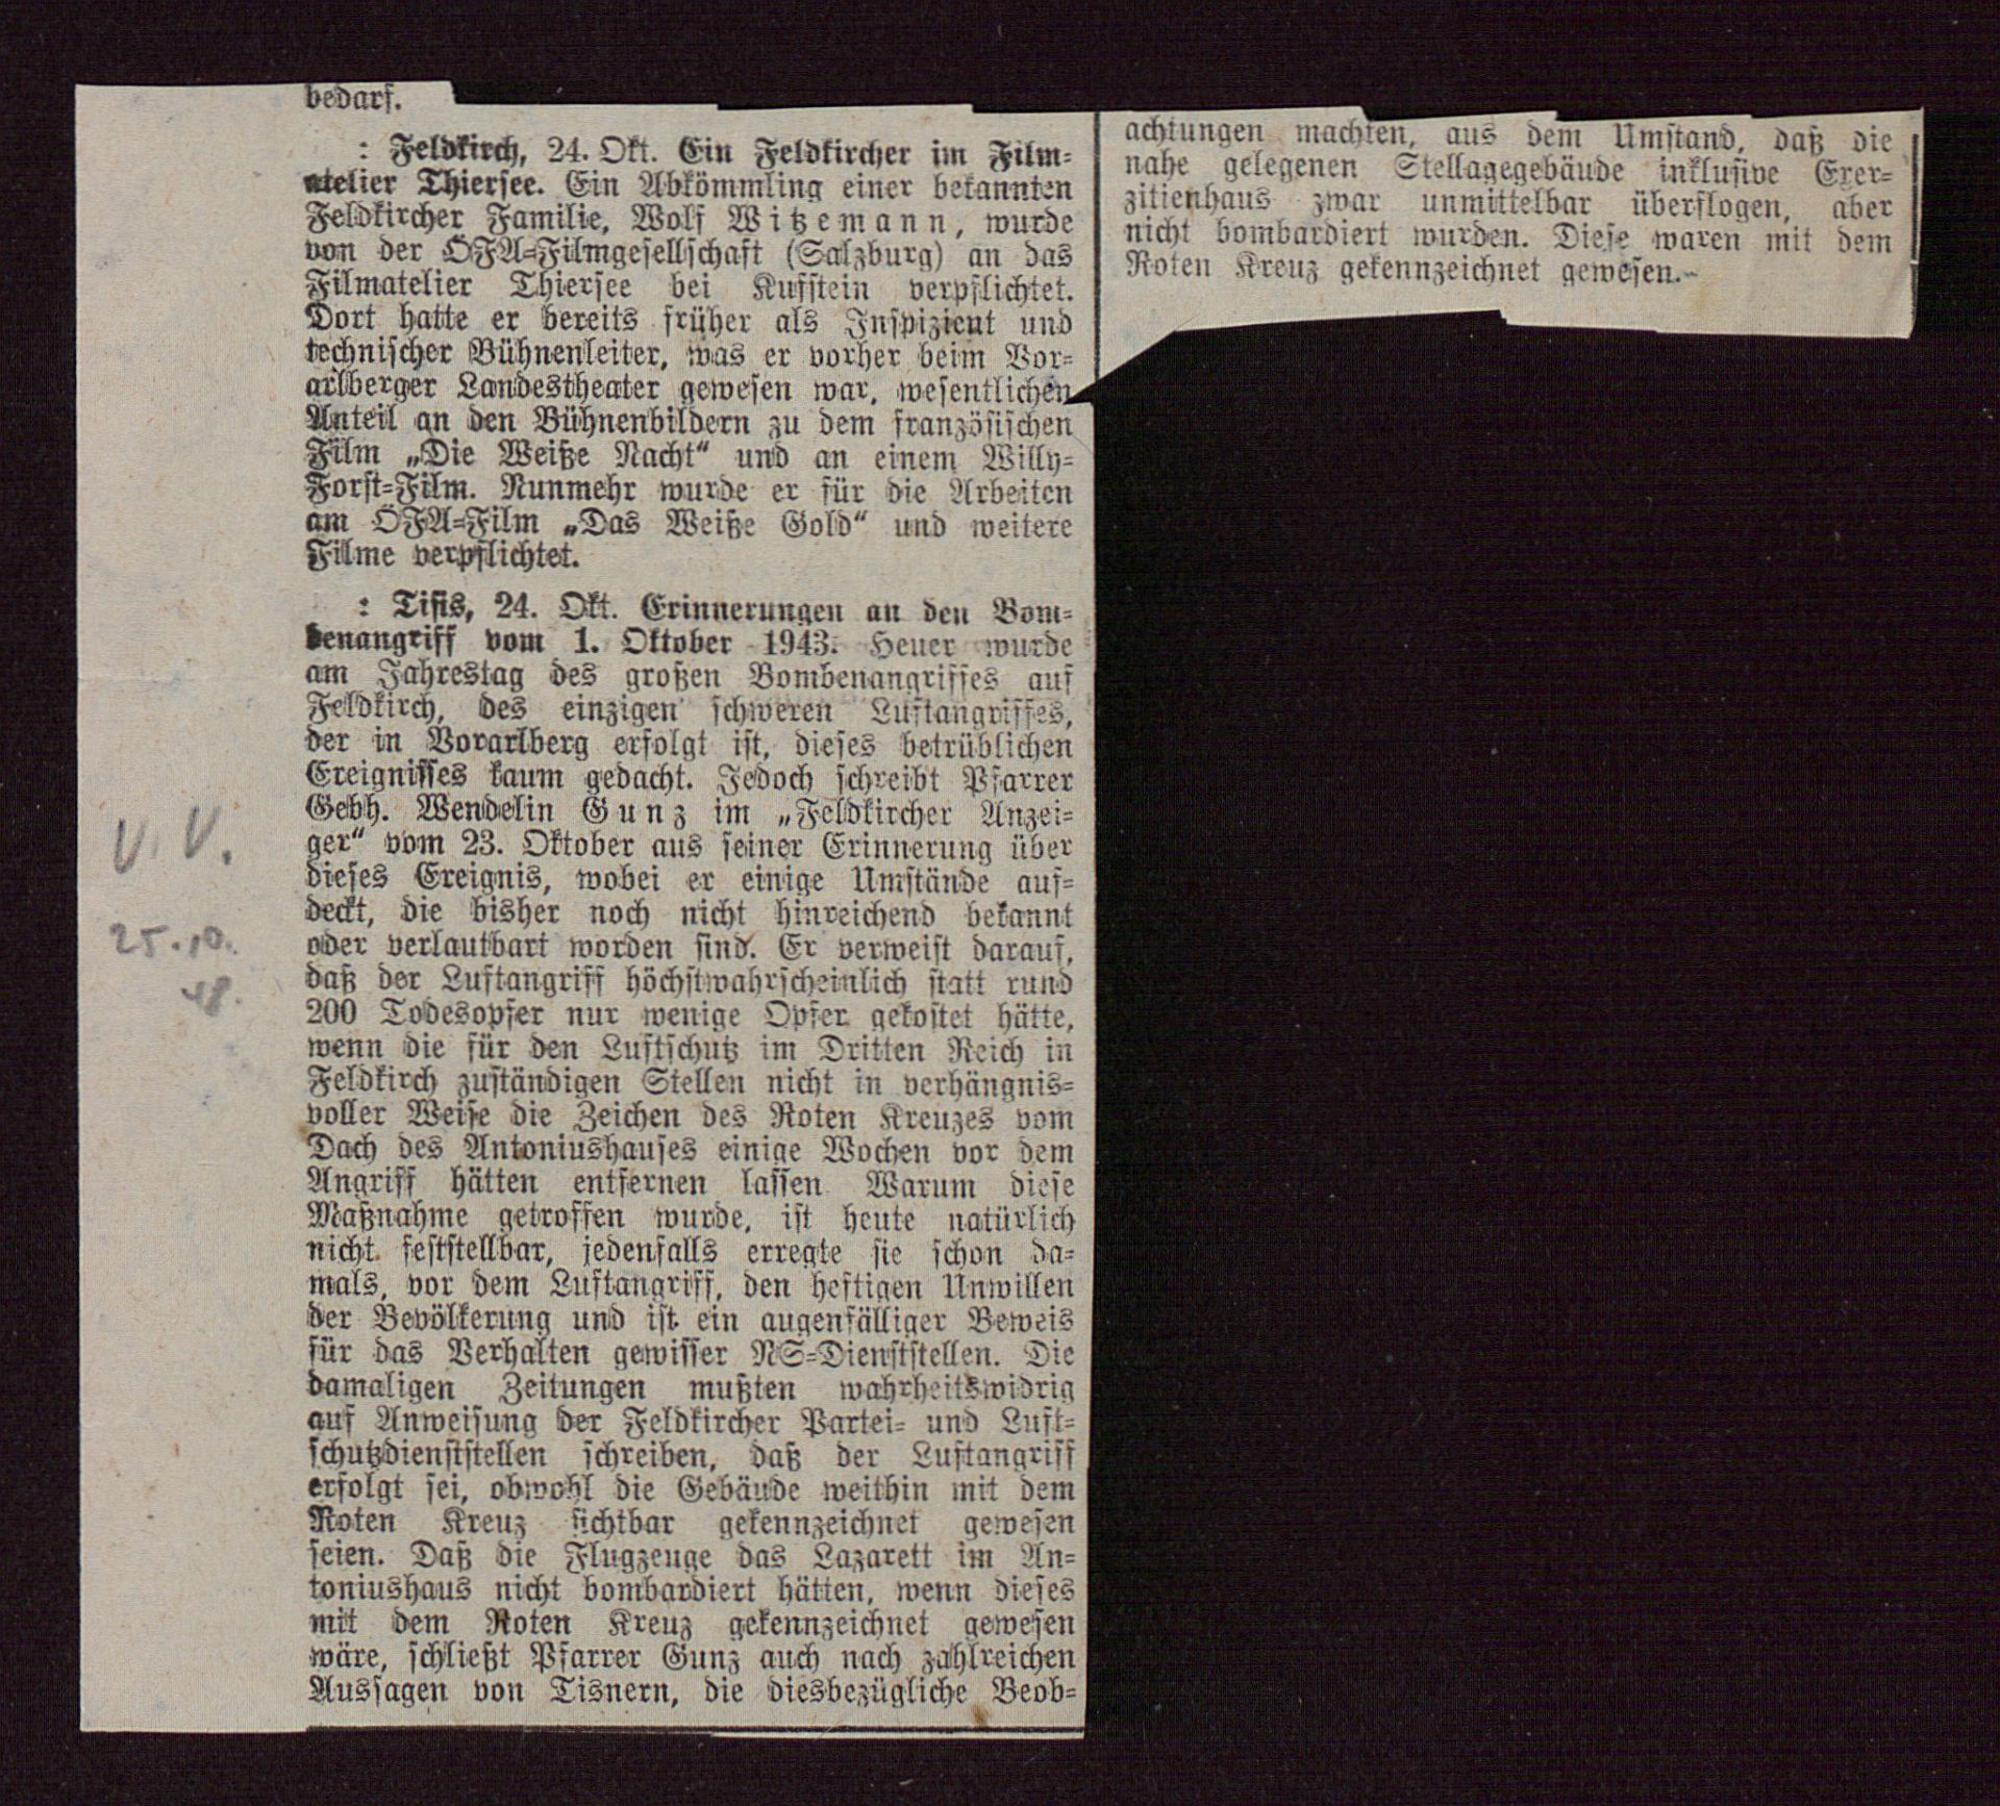 bedarf.
: Feldkirch, 24. Okt. Ein Feldkircher im Film-
atelier Thiersee. Ein Abkömmling einer bekannten
Feldkircher Familie, Wolf Witzemann, wurde
von der ÖFA-Filmgesellschaft (Salzburg) an das
Filmatelier Thiersee bei Kufstein verpflichtet.
Dort hatte er bereits früher als Inspizient und
technischer Bühnenleiter, was er vorher beim Vor-
arlberger Landestheater gewesen war, wesentlichen
Anteil an den Bühnenbildern zu dem französischen
Film „Die Weiße Nacht“ und an einem Willy-
Forst-Film. Nunmehr wurde er für die Arbeiten
am ÖFA-Film „Das Weiße Gold“ und weitere
Filme verpflichtet.
: Tisis, 24. Okt. Erinnerungen an den Bom-
benangriff vom 1. Oktober 1943. Heuer wurde
am Jahrestag des großen Bombenangriffes auf
Feldkirch, des einzigen schweren Luftangriffes,
der in Vorarlberg erfolgt ist, dieses betrüblichen
Ereignisses kaum gedacht. Jedoch schreibt Pfarrer
Gebh. Wendelin Gunz im „Feldkircher Anzei-
ger“ vom 23. Oktober aus seiner Erinnerung über
dieses Ereignis, wobei er einige Umstände auf-
deckt, die bisher noch nicht hinreichend bekannt
oder verlautbart worden sind. Er verweist darauf,
daß der Luftangriff höchstwahrscheinlich statt rund
200 Todesopfer nur wenige Opfer gekostet hätte,
wenn die für den Luftschutz im Dritten Reich in
Feldkirch zuständigen Stellen nicht in verhängnis-
voller Weise die Zeichen des Roten Kreuzes vom
Dach des Antoniushauses einige Wochen vor dem
Angriff hätten entfernen lassen Warum diese
Maßnahme getroffen wurde, ist heute natürlich
nicht feststellbar, jedenfalls erregte sie schon da-
mals, vor dem Luftangriff, den heftigen Unwillen
der Bevölkerung und ist ein augenfälliger Beweis
für das Verhalten gewisser NS-Dienststellen. Die
damaligen Zeitungen mußten wahrheitswidrig
auf Anweisung der Feldkircher Partei- und Luft-
schutzdienststellen schreiben, daß der Luftangriff
erfolgt sei, obwohl die Gebäude weithin mit dem
Roten Kreuz sichtbar gekennzeichnet gewesen
seien. Daß die Flugzeuge das Lazarett im An-
toniushaus nicht bombardiert hätten, wenn dieses
mit dem Roten Kreuz gekennzeichnet gewesen
wäre, schließt Pfarrer Gunz auch nach zahlreichen
Aussagen von Tisnern, die diesbezügliche Beob-
achtungen machten, aus dem Umstand, daß die
nahe gelegenen Stellagegebäude inklusive Exer-
zitienhaus zwar unmittelbar überflogen, aber
nicht bombardiert wurden. Diese waren mit dem
Roten Kreuz gekennzeichnet gewesen.-
V. V.
25.10.
48.